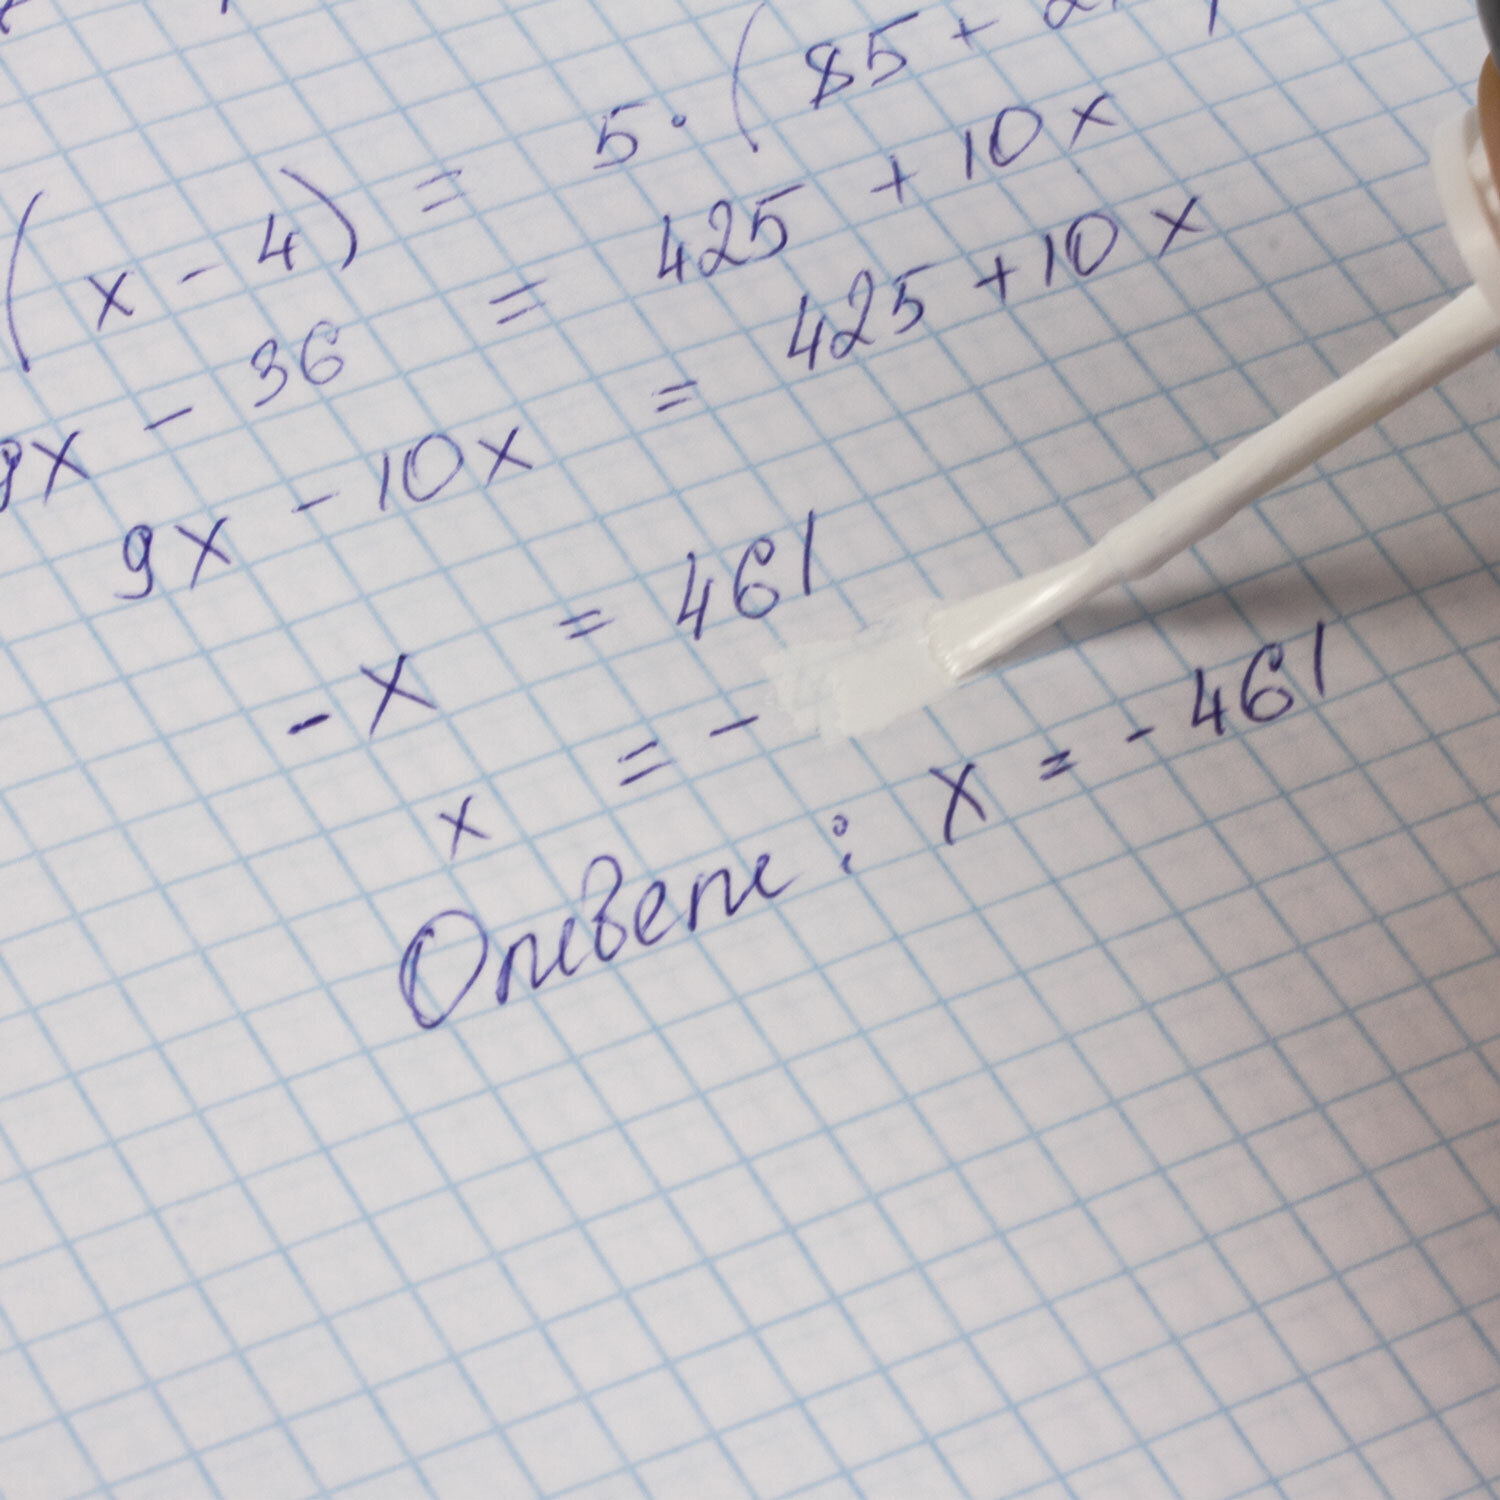 (x - 4) = 5 · (85 + 2
9x - 36 = 425 + 10x
9x - 10x = 425 + 10x
-x = 461
x = -
Ответ: x = - 461